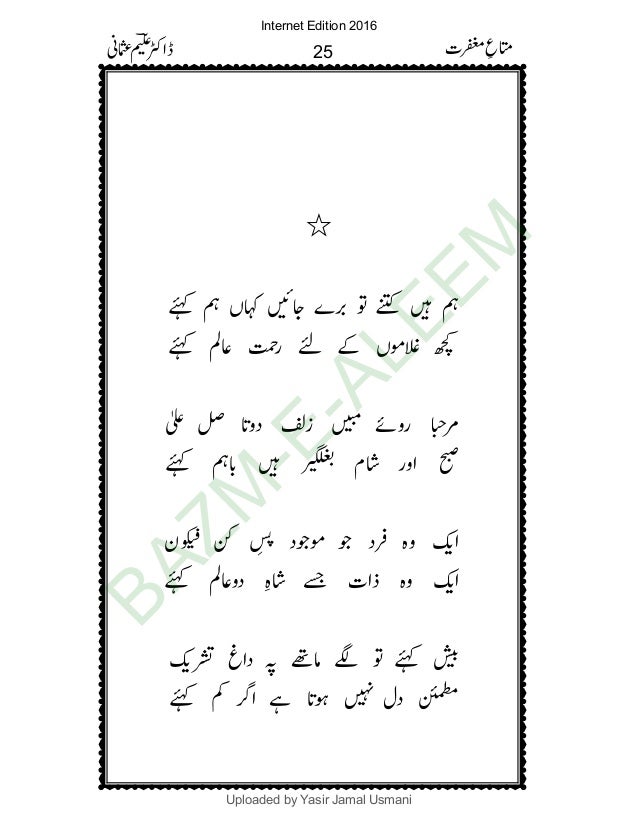 Internet Edition 2016
متاعِ مغفرت
25
ڈاکٹر علیم عثمانی
☆
ہم ہیں کتنے تو برے جائیں کہاں ہم کہئے
کچھ غلاموں کے لئے رحمت عالم کہئے
مرحبا روئے مبیں زلف دوتا صل علیٰ
صبح اور شام بغلگیر ہیں باہم کہئے
ایک وہ فرد جو موجود پسِ کن فیکون
ایک وہ ذات جسے شاہِ دوعالم کہئے
بیش کہئے تو لگے ماتھے پہ داغ تشریک
مطمئن دل نہیں ہوتا ہے اگر کم کہئے
BAZM-E-ALEEM
Uploaded by Yasir Jamal Usmani